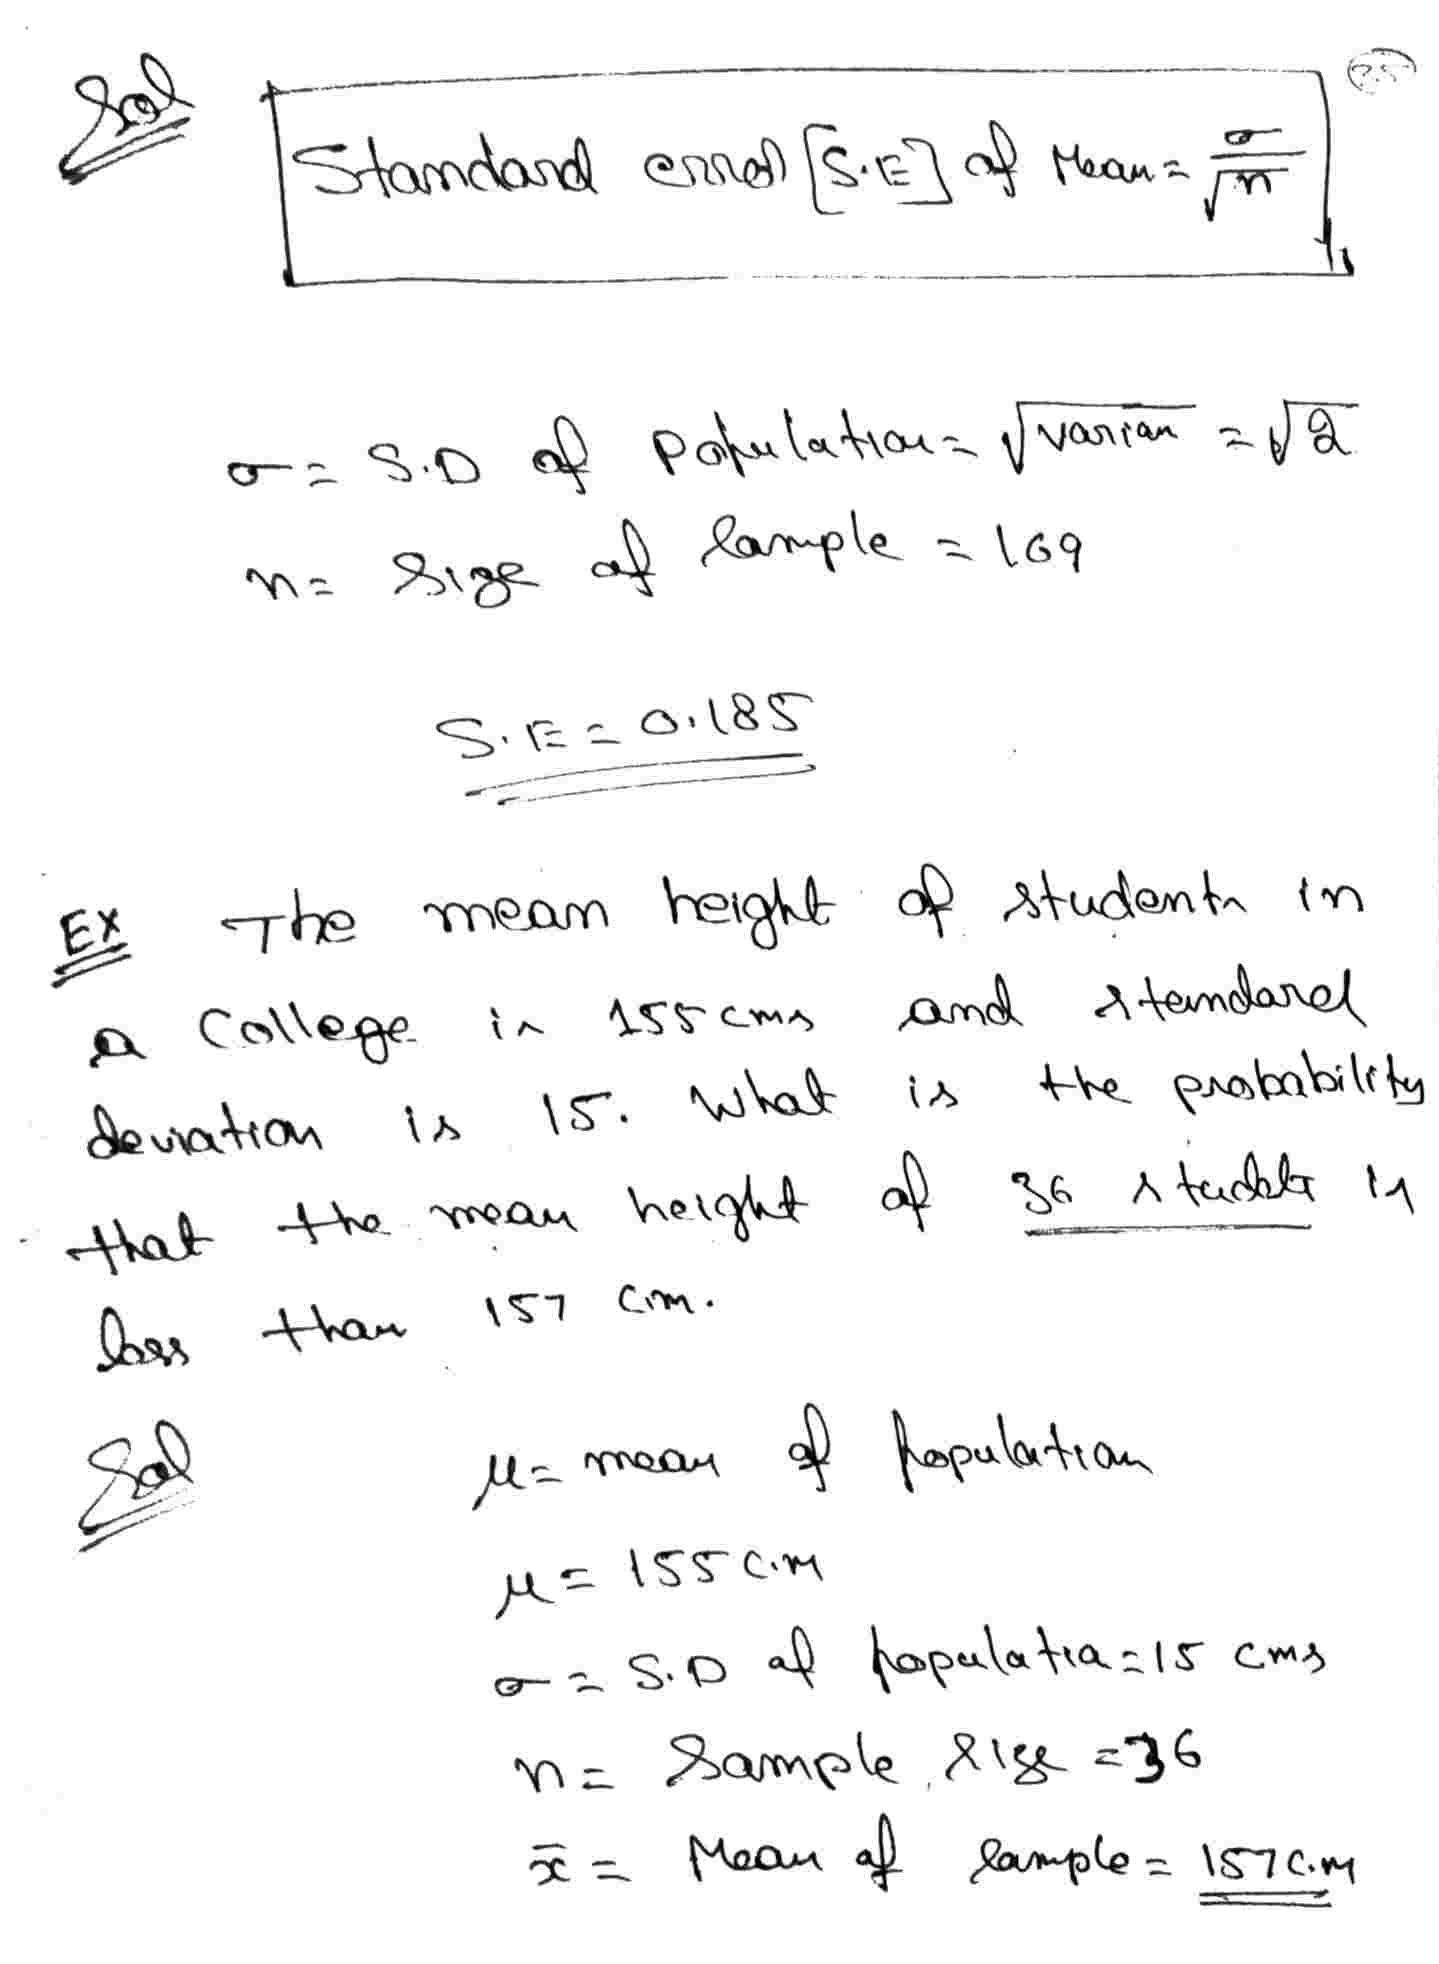 Sol
Standard error [S.E] of Mean = σ/√n
σ = S.D of Population = √varian = √2
n = Size of Sample = 169
S.E = 0.185
EX The mean height of students in
a College is 155 cms and standard
deviation is 15. What is the probability
that the mean height of 36 studets is
less than 157 c.m.
Sol
μ = mean of population
μ = 155 c.m
σ = S.D of populatia = 15 cms
n = Sample size = 36
x̄ = Mean of Sample = 157 c.m